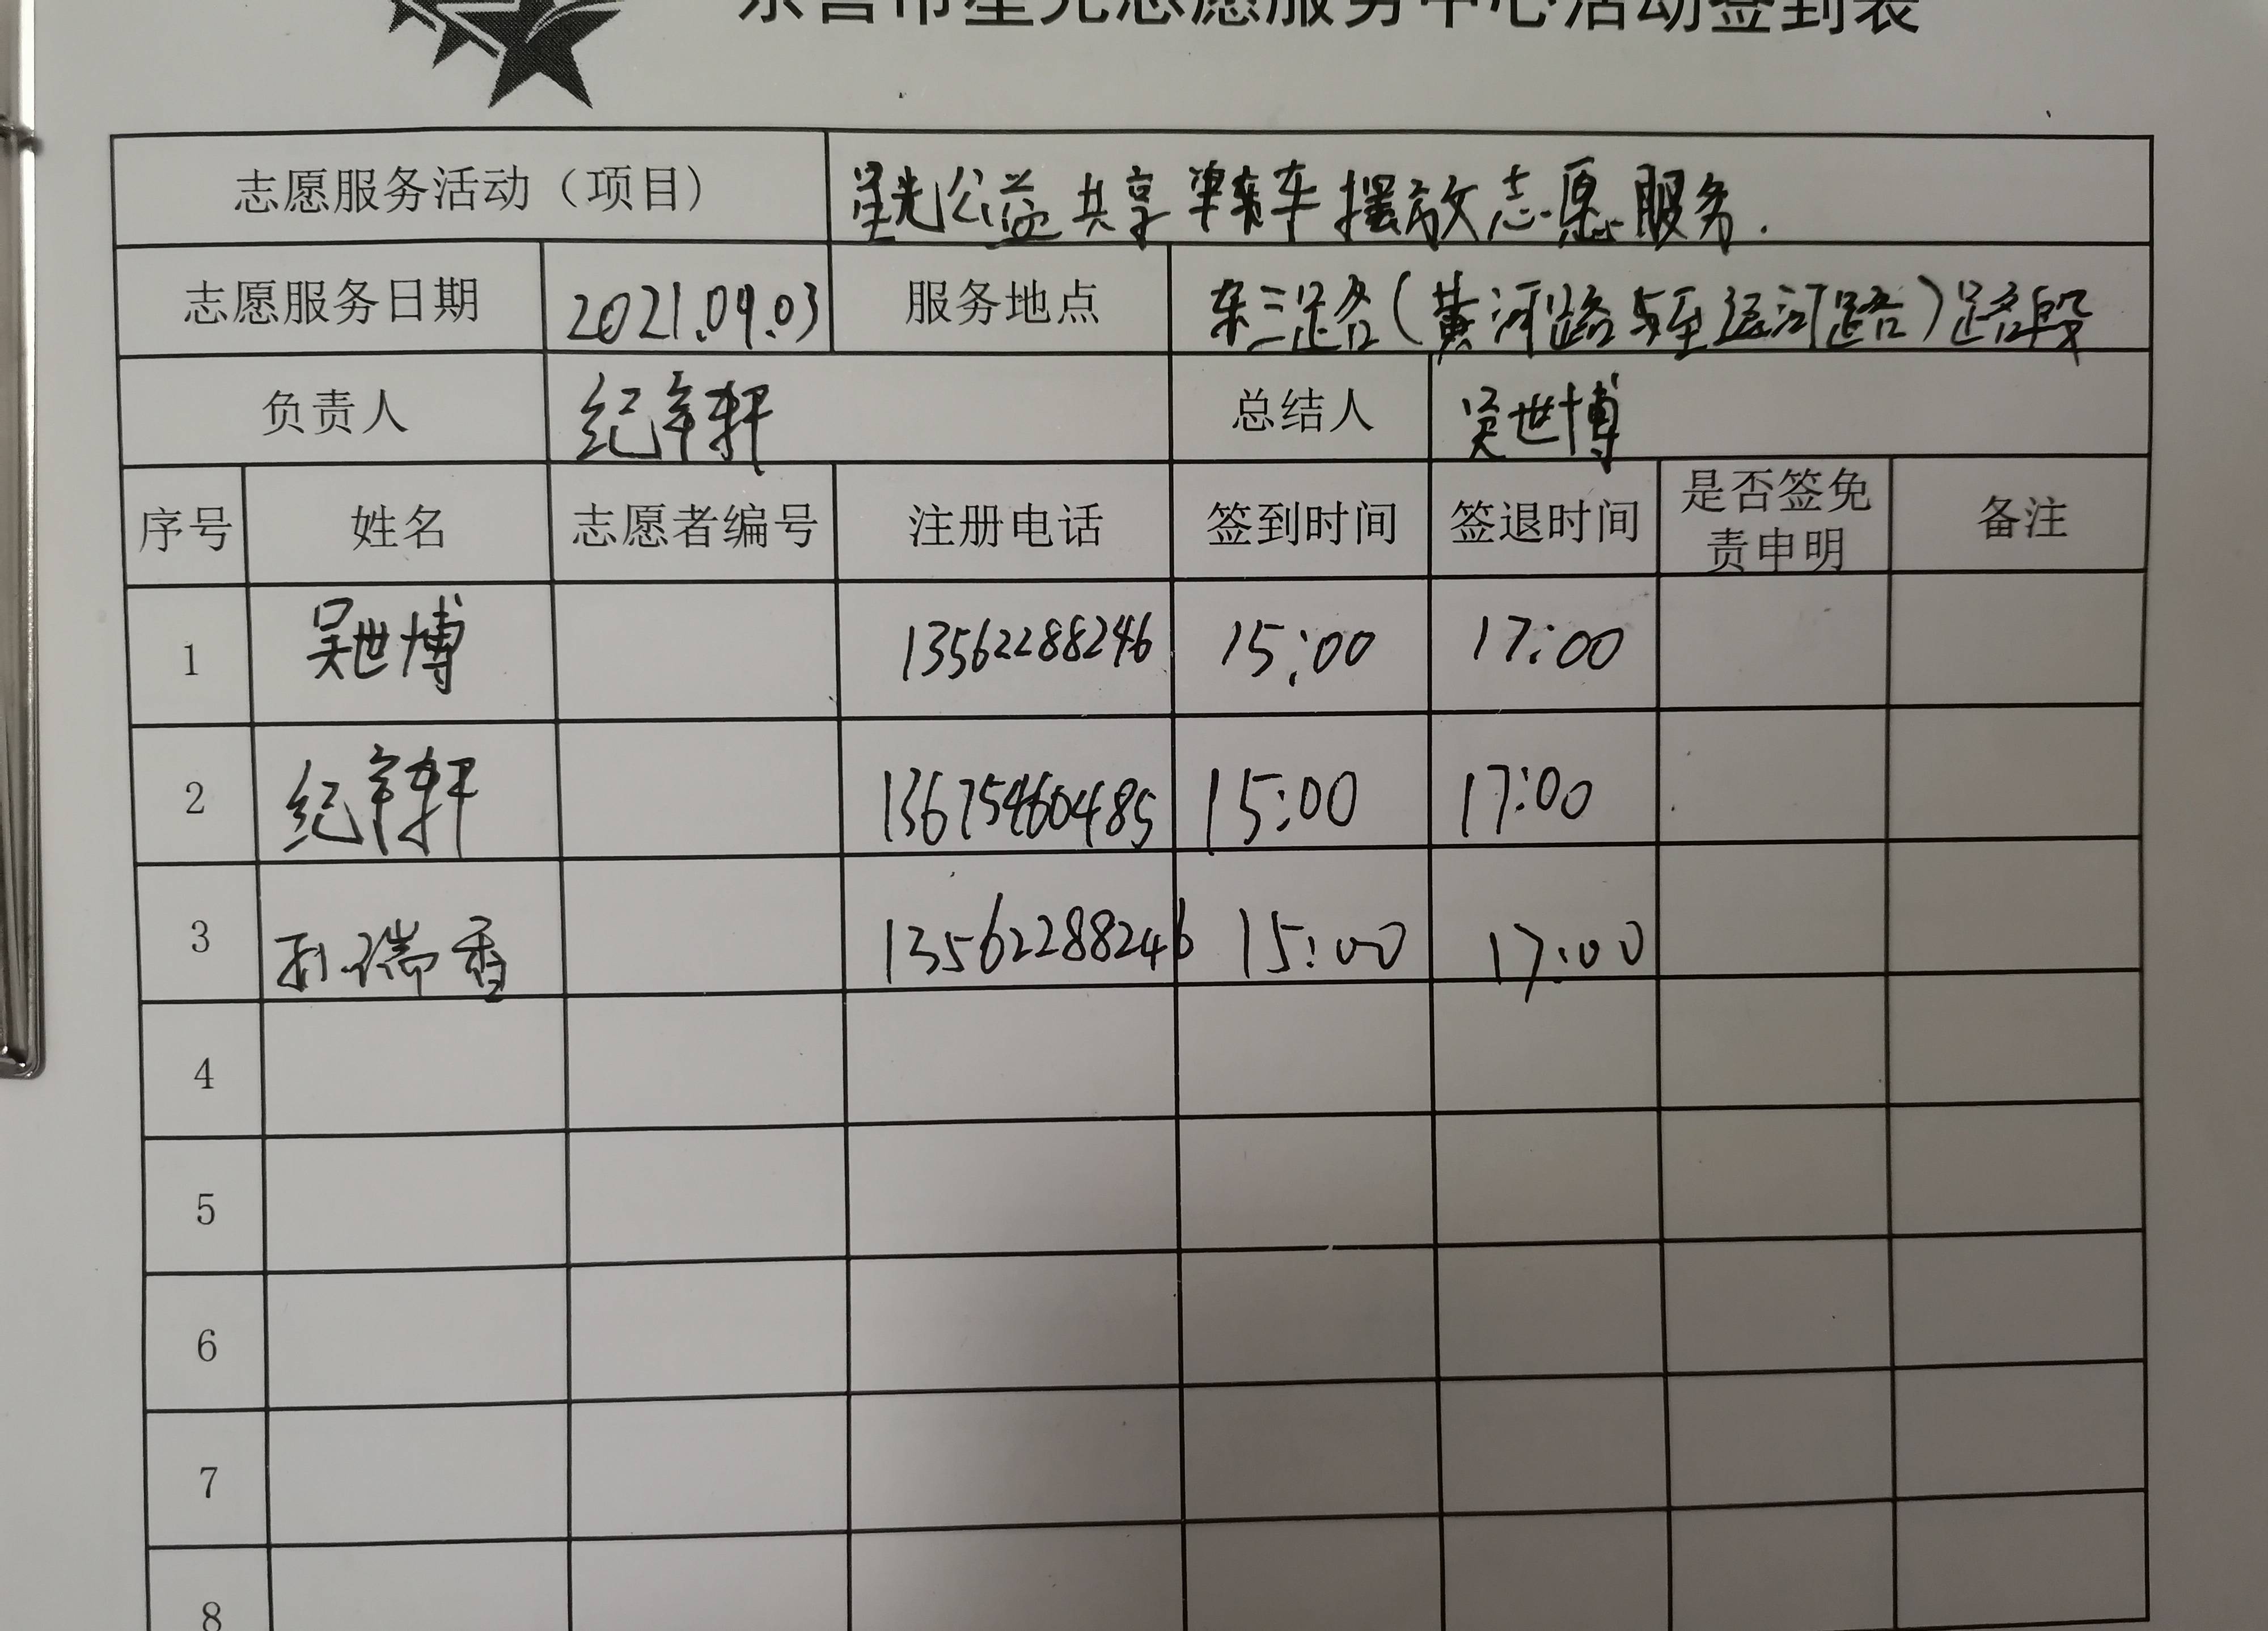 东营市星光志愿服务中心活动签到表
志愿服务活动（项目） 星光公益共享单车摆放志愿服务.
志愿服务日期 2021.09.03 服务地点 东三路(黄河路与至运河路)路段
负责人 纪辛轩 总结人 吴世博
序号 姓名 志愿者编号 注册电话 签到时间 签退时间 是否签免责申明 备注
1 吴世博 13562288246 15:00 17:00
2 纪辛轩 13675460485 15:00 17:00
3 孙瑞香 13562288246 15:00 17:00
4
5
6
7
8